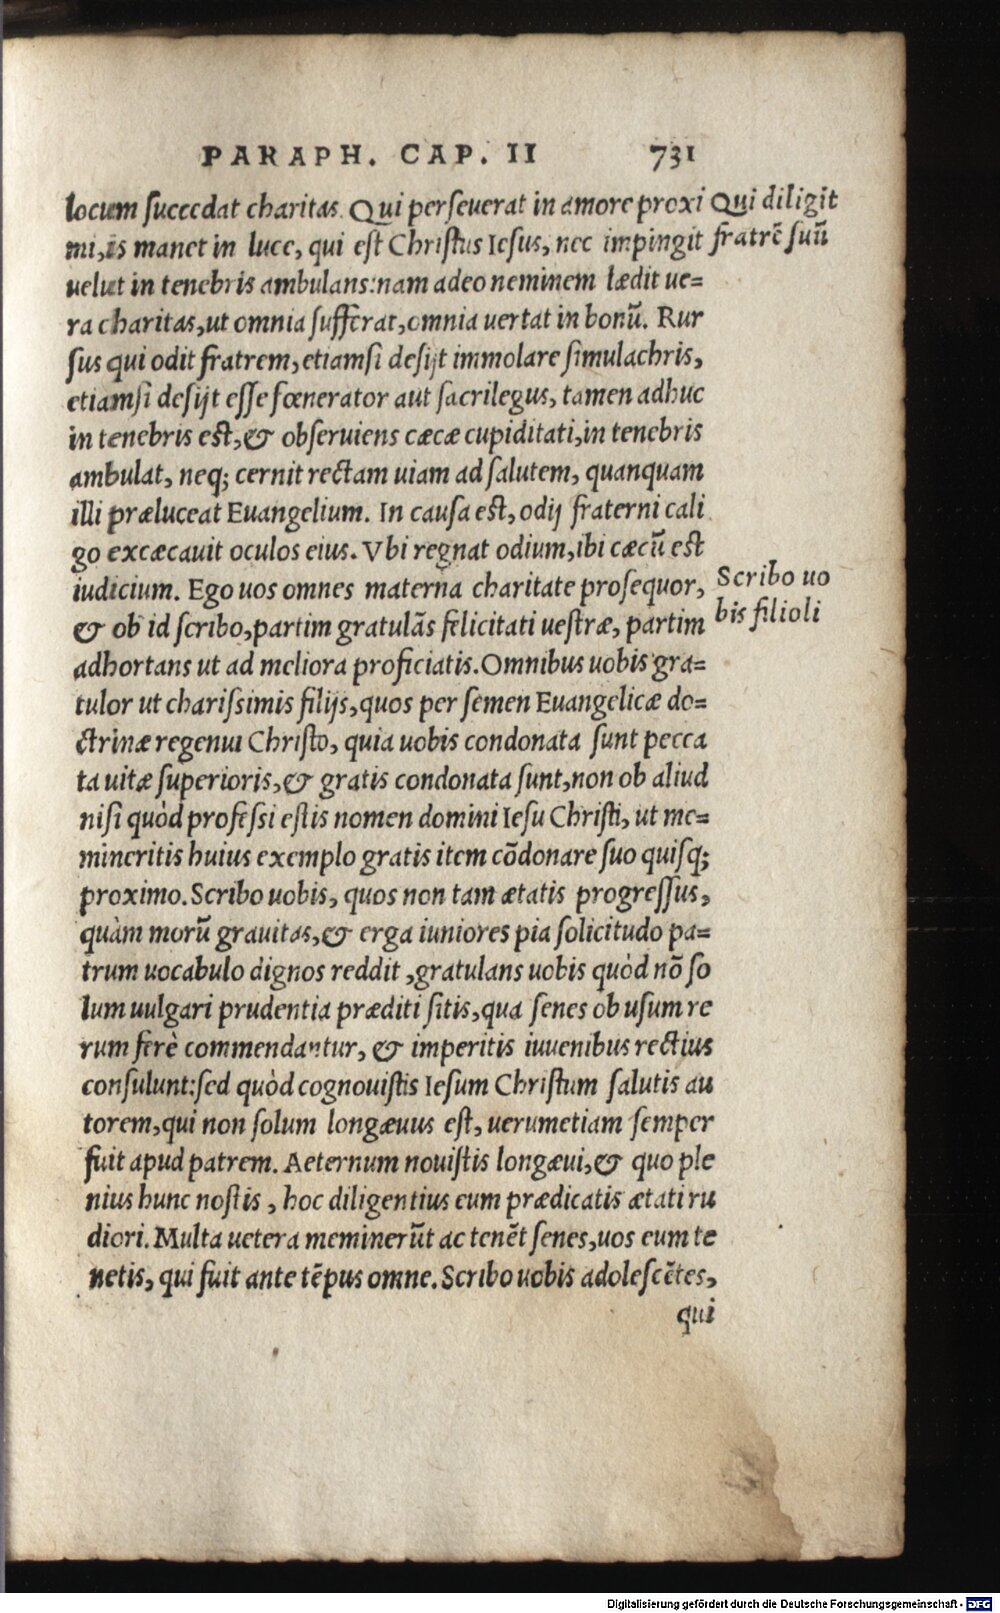 PARAPH. CAP. II 731
locum succedat charitas. Qui perseverat in amore proxi
Qui diligit
mi, is manet in luce, qui est Christus Iesus, nec impingit
fratrē suū
uelut in tenebris ambulans: nam adeo neminem lædit ue=
ra charitas, ut omnia sufferat, omnia uertat in bonū. Rur
sus qui odit fratrem, etiamsi desijt immolare simulachris,
etiamsi desijt esse fœnerator aut sacrilegus, tamen adhuc
in tenebris est, & obseruiens cæcæ cupiditati, in tenebris
ambulat, neq; cernit rectam uiam ad salutem, quanquam
illi præluceat Euangelium. In causa est, odij fraterni cali
go excæcauit oculos eius. Vbi regnat odium, ibi cæcū est
iudicium. Ego uos omnes materna charitate prosequor,
Scribo uo
& ob id scribo, partim gratulās felicitati uestræ, partim
bis filioli
adhortans ut ad meliora proficiatis. Omnibus uobis gra=
tulor ut charissimis filijs, quos per semen Euangelicæ do=
ctrinæ regenui Christo, quia uobis condonata sunt pecca
ta uitæ superioris, & gratis condonata sunt, non ob aliud
nisi quòd professi estis nomen domini Iesu Christi, ut me=
mineritis huius exemplo gratis item cōdonare suo quisq;
proximo. Scribo uobis, quos non tam ætatis progressus,
quàm morū grauitas, & erga iuniores pia solicitudo pa=
trum uocabulo dignos reddit, gratulans uobis quòd nō so
lum uulgari prudentia præditi sitis, qua senes ob usum re
rum ferè commendantur, & imperitis iuuenibus rectius
consulunt: sed quòd cognouistis Iesum Christum salutis au
torem, qui non solum longæuus est, uerumetiam semper
fuit apud patrem. Aeternum nouistis longæui, & quo ple
nius hunc nostis, hoc diligentius eum prædicatis ætati ru
diori. Multa uetera meminerūt ac tenēt senes, uos eum te
netis, qui fuit ante tēpus omne. Scribo uobis adolescētes,
qui
Digitalisierung gefördert durch die Deutsche Forschungsgemeinschaft - DFG